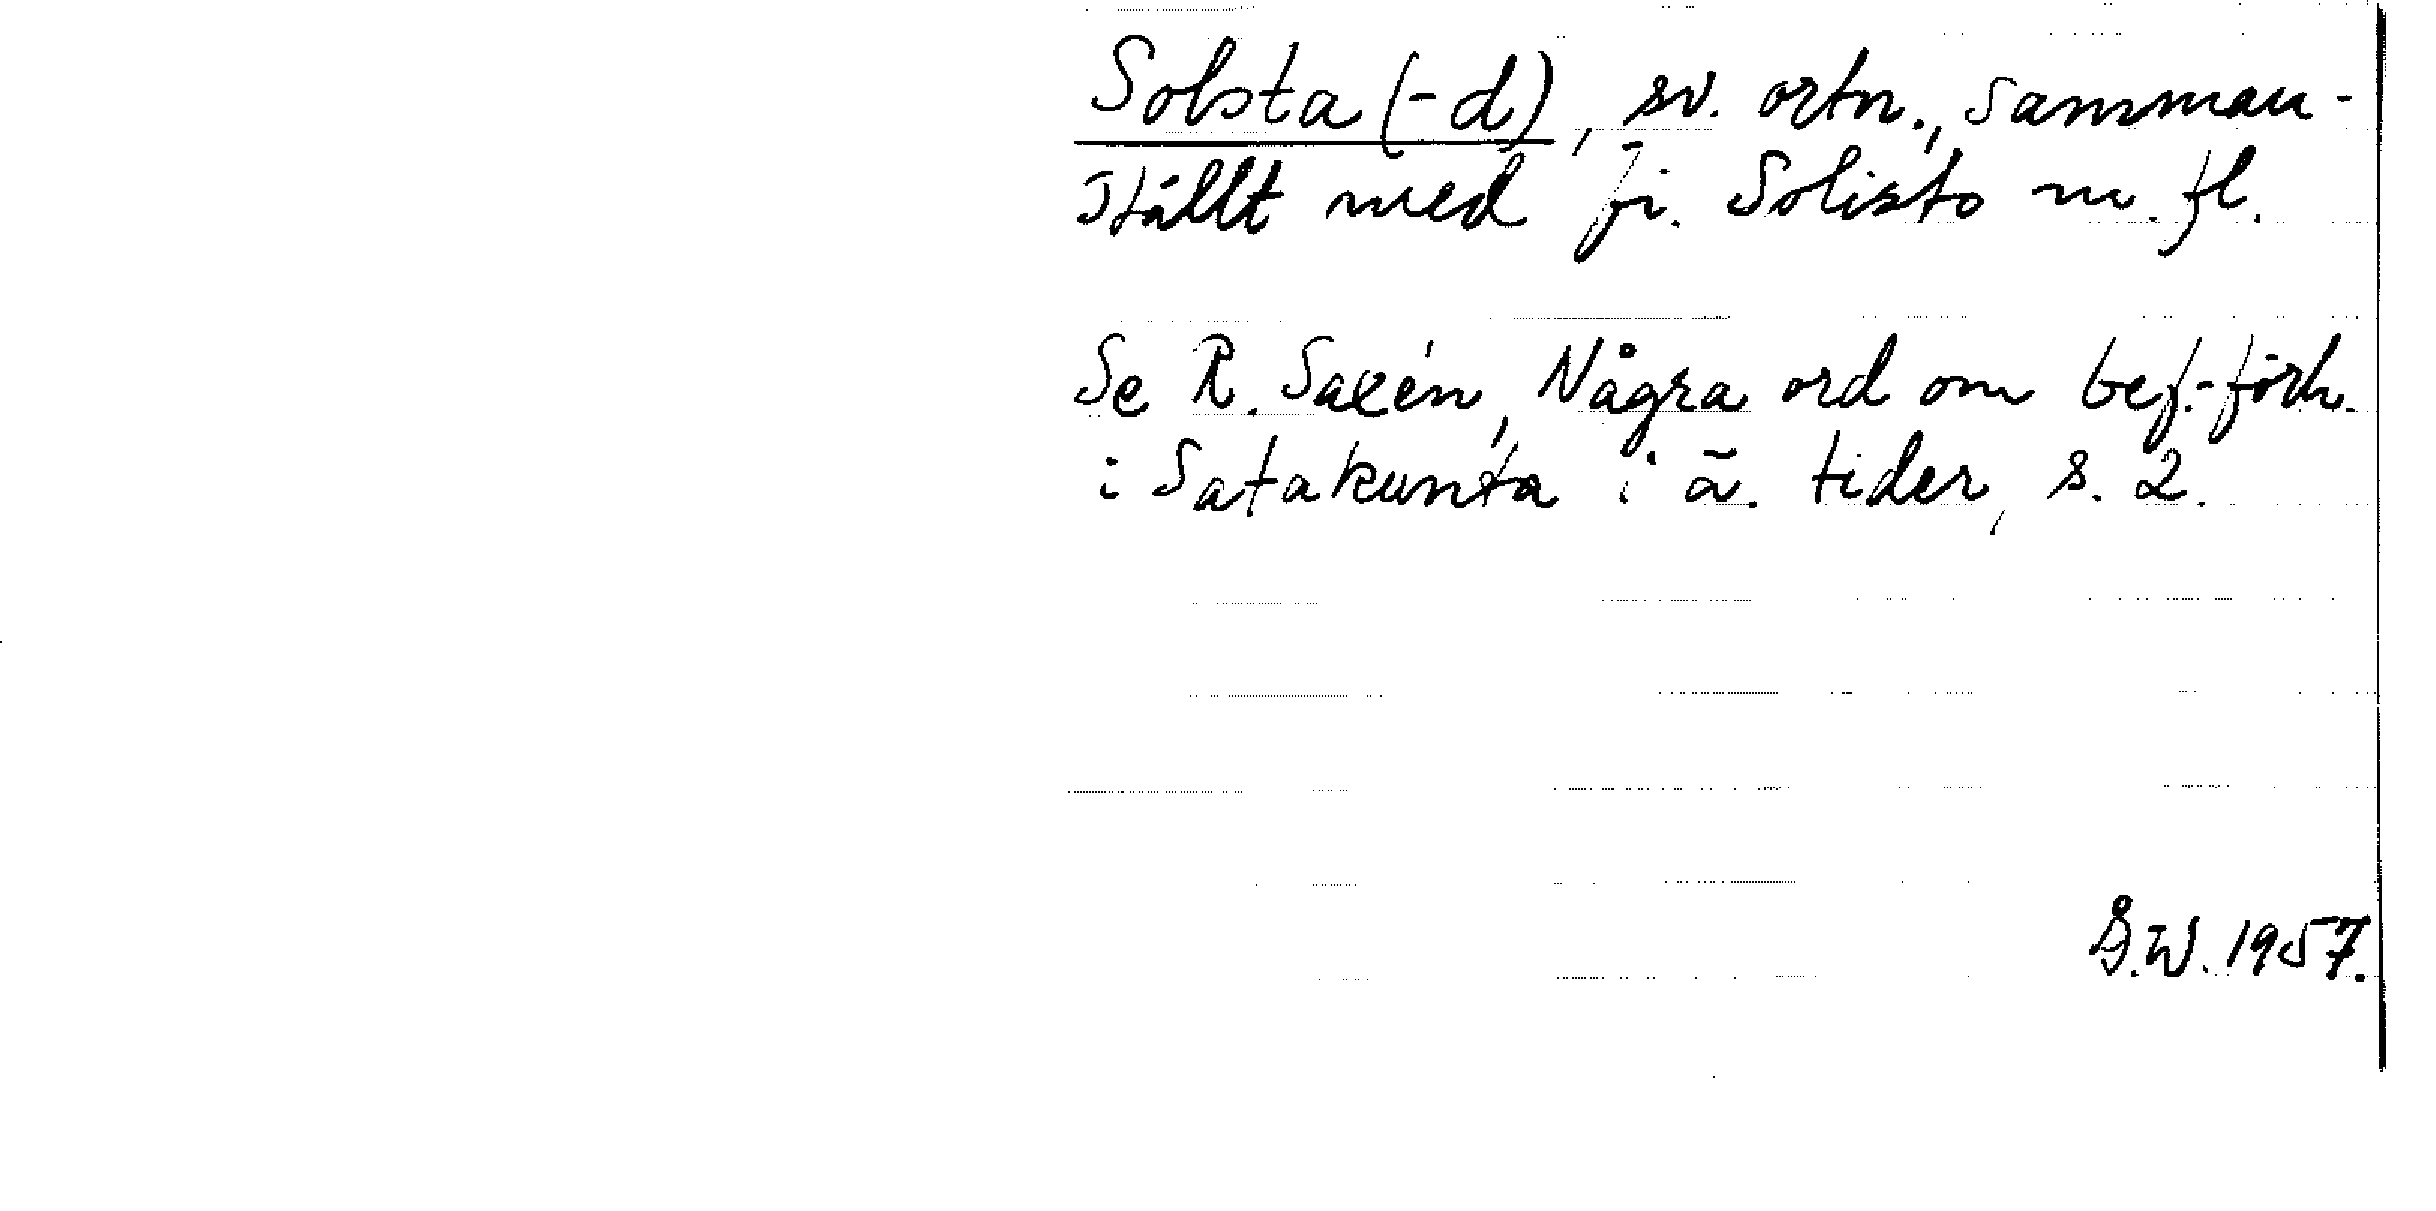 Solsta (-d), sv. ortn., samman-
ställt med fi. Solisto m. fl.
Se R. Saxén, Några ord om bef.-förh.
i Satakunta i ä. tider, s. 2.
G.W. 1957.